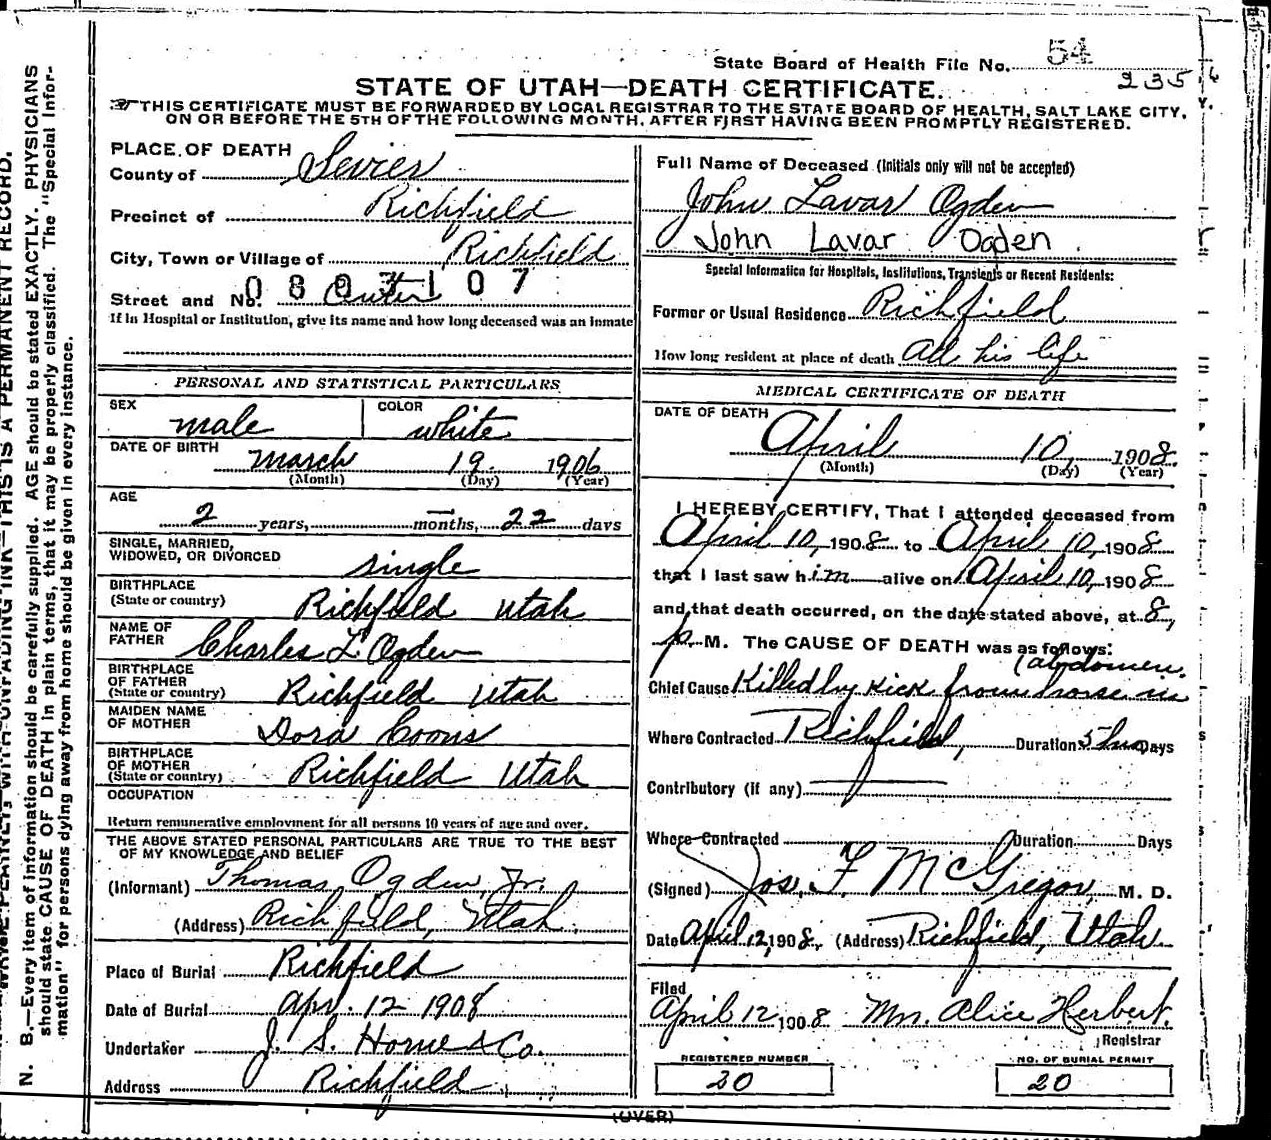 State Board of Health File No. 54
235
STATE OF UTAH—DEATH CERTIFICATE.
THIS CERTIFICATE MUST BE FORWARDED BY LOCAL REGISTRAR TO THE STATE BOARD OF HEALTH, SALT LAKE CITY,
ON OR BEFORE THE 5TH OF THE FOLLOWING MONTH, AFTER FIRST HAVING BEEN PROMPTLY REGISTERED.
PLACE OF DEATH
County of Sevier
Precinct of Richfield
City, Town or Village of Richfield
Street and No. Center
If in Hospital or Institution, give its name and how long deceased was an inmate
PERSONAL AND STATISTICAL PARTICULARS
SEX male COLOR white
DATE OF BIRTH March 19. 1906
(Month) (Day) (Year)
AGE
2 years, — months, 22 days
SINGLE, MARRIED,
WIDOWED, OR DIVORCED single
BIRTHPLACE
(State or country) Richfield Utah
NAME OF
FATHER Charles L. Ogden
BIRTHPLACE
OF FATHER
(State or country) Richfield Utah
MAIDEN NAME
OF MOTHER Dora Coons
BIRTHPLACE
OF MOTHER
(State or country) Richfield Utah
OCCUPATION
Return remunerative employment for all persons 10 years of age and over.
THE ABOVE STATED PERSONAL PARTICULARS ARE TRUE TO THE BEST
OF MY KNOWLEDGE AND BELIEF
(Informant) Thomas Ogden, Jr.
(Address) Richfield, Utah.
Place of Burial Richfield
Date of Burial Apr. 12 1908
Undertaker J. S. Horne & Co.
Address Richfield
Full Name of Deceased (Initials only will not be accepted)
John Lavar Ogden
John Lavar Ogden.
Special Information for Hospitals, Institutions, Transients or Recent Residents:
Former or Usual Residence Richfield
How long resident at place of death All his life
MEDICAL CERTIFICATE OF DEATH
DATE OF DEATH
April 10, 1908.
(Month) (Day) (Year)
I HEREBY CERTIFY, That I attended deceased from
April 10, 1908 to April 10, 1908
that I last saw him alive on April 10, 1908
and that death occurred, on the date stated above, at 8,
p. M. The CAUSE OF DEATH was as follows:
(abdomen.
Chief Cause Killed by kick from horse in
Where Contracted Richfield, Duration 5 hrs Days
Contributory (if any)
Where Contracted Duration Days
(Signed) Jos. F. McGregor, M. D.
Date April 12, 1908, (Address) Richfield, Utah.
Filed
April 12 1908 Mrs. Alice Herbert.
Registrar
REGISTERED NUMBER
20
NO. OF BURIAL PERMIT
20
(OVER)
N. B.—Every item of information should be carefully supplied. AGE should be stated EXACTLY. PHYSICIANS
should state CAUSE OF DEATH in plain terms, that it may be properly classified. The "Special Infor-
mation" for persons dying away from home should be given in every instance.